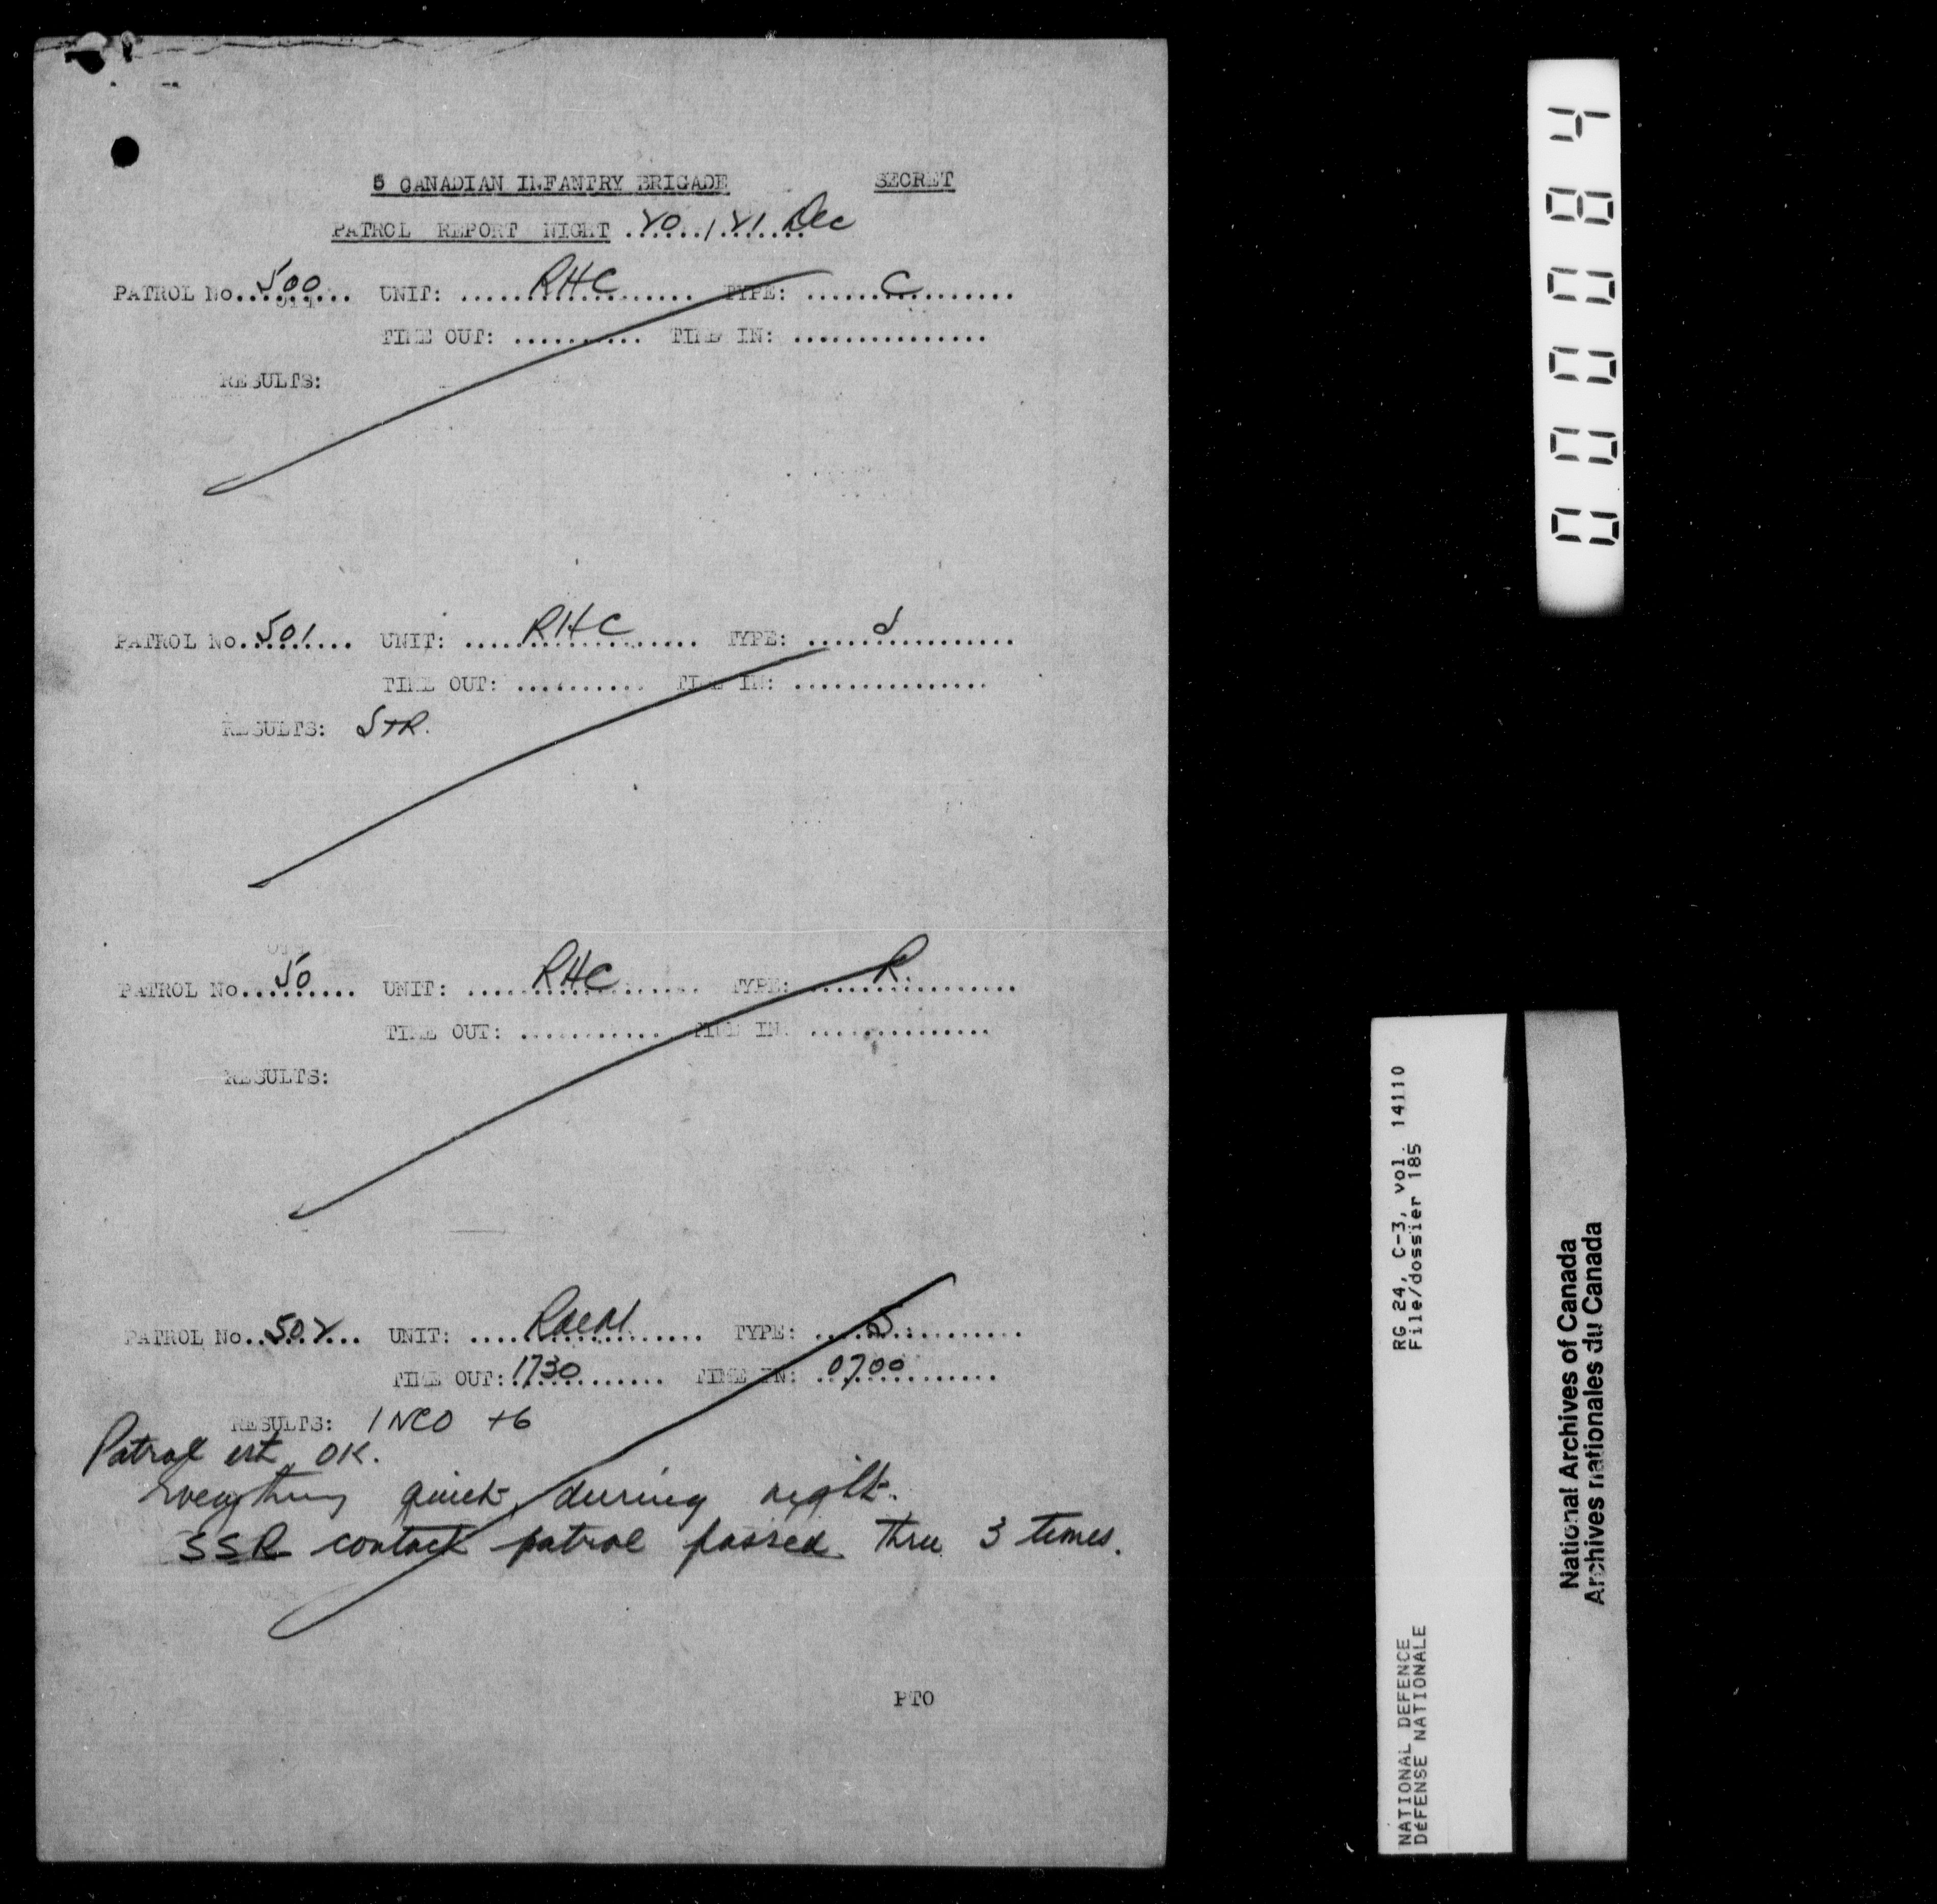 5 CANADIAN INFANTRY BRIGADE SECRET
PATROL REPORT NIGHT 20/21 Dec
PATROL No. 500 UNIT: RHC TYPE: C
TIME OUT: .......... TIME IN: ...............
RESULTS:
PATROL No. 501 UNIT: RHC TYPE: S
TIME OUT: .......... TIME IN: ...............
RESULTS: STR.
PATROL No. 50 UNIT: RHC TYPE: R.
TIME OUT: ........... TIME IN: ..............
RESULTS:
PATROL No. 502 UNIT: TYPE: S
TIME OUT: 1730 TIME IN: 0700
RESULTS: 1 NCO +6
Patrol est OK.
Everything quiet during night.
SSR contact patrol passed thru 3 times.
PTO
000084
RG 24, C-3, vol. 14110
File/dossier 185
NATIONAL DEFENCE
DéFENSE NATIONALE
National Archives of Canada
Archives nationales du Canada